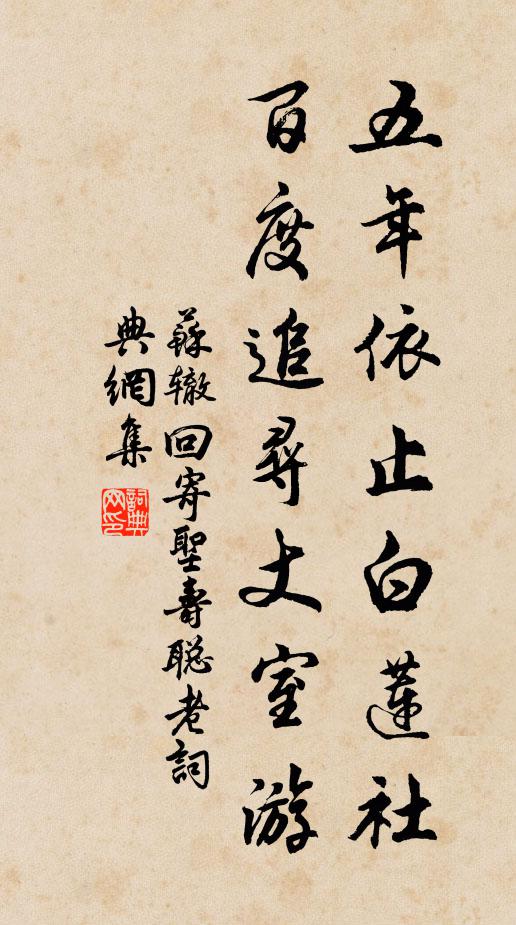 五年依止白蓮社
百度追尋丈室游
蘇辙回寄聖壽聪老詞
典網集
詞典网印